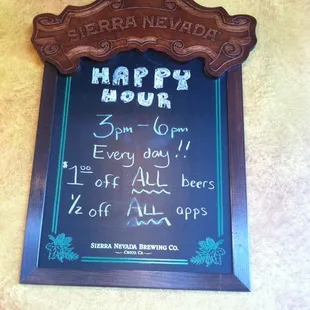 SIERRA NEVADA
HAPPY
HOUR
3pm - 6pm
Every day!!
$1.00 off ALL beers
1/2 off ALL apps
SIERRA NEVADA BREWING CO.
CHICO, CA